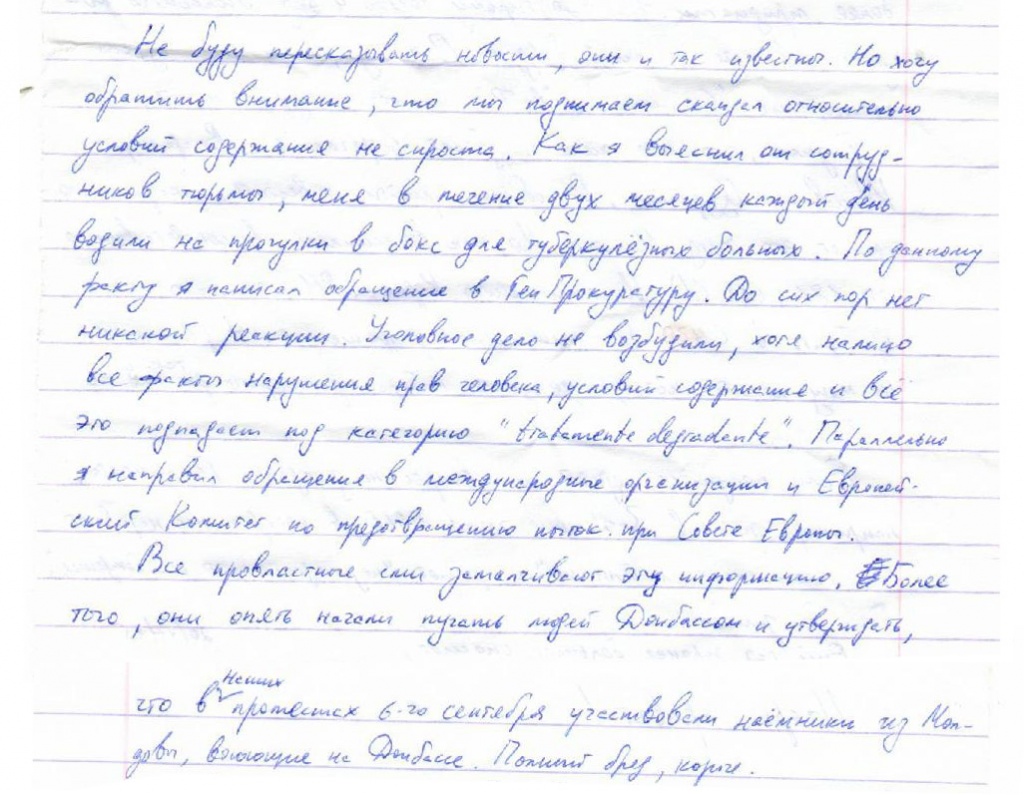 Не буду пересказывать новости, они и так известны. Но хочу
обратить внимание, что мы поднимаем скандал относительно
условий содержания не спроста. Как я выяснил от сотруд-
ников тюрьмы, меня в течение двух месяцев каждый день
водили на прогулки в бокс для туберкулёзных больных. По данному
факту я написал обращение в ГенПрокуратуру. До сих пор нет
никакой реакции. Уголовное дело не возбудили, хотя налицо
все факты нарушения прав человека, условий содержания и всё
это подпадает под категорию "tratamente degradante". Параллельно
я направил обращения в международные организации и Европей-
ский Комитет по предотвращению пыток при Совете Европы.
Все провластные сми замалчивают эту информацию. Более
того, они опять начали пугать людей Донбассом и утверждать,
что в наших протестах 6-го сентября участвовали наёмники из Мол-
довы, воюющие на Донбассе. Полный бред, короче.